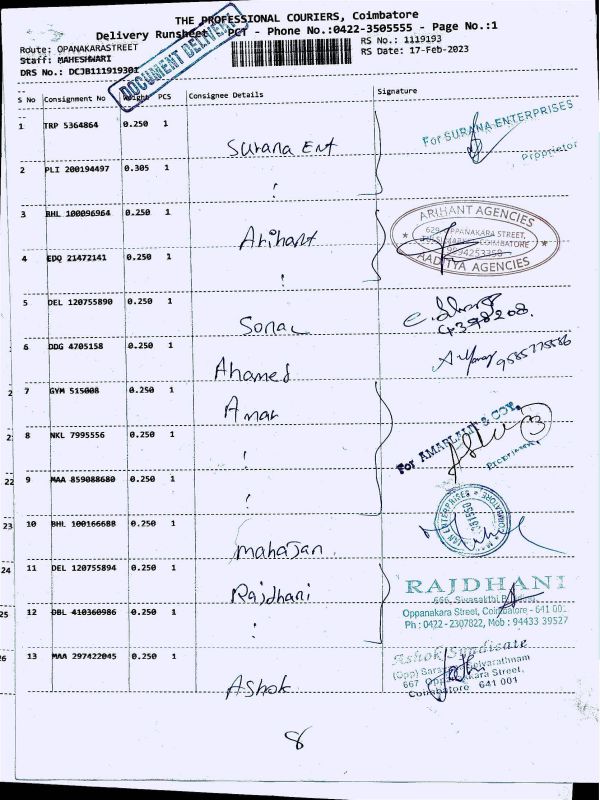 THE PROFESSIONAL COURIERS, Coimbatore
Delivery Runsheet PCT - Phone No.:0422-3505555 - Page No.:1
Route: OPANAKARASTREET
RS No.: 1119193
Staff: MAHESHWARI
RS Date: 17-Feb-2023
DRS No.: DCJB111919301
DOCUMENT DELIVERY
S No Consignment No Weight PCS Consignee Details Signature
1 TRP 5364864 0.250 1 Surana Ent
For SURANA ENTERPRISES
Proprietor
2 PLI 200194497 0.305 1
3 BHL 100096964 0.250 1 Arihant
ARIHANT AGENCIES
COIMBATORE
AADITYA AGENCIES
4 EDQ 21472141 0.250 1
5 DEL 120755890 0.250 1 Sonal
6 DDG 4705158 0.250 1 Ahamed
9585775586
2 7 GYM 515008 0.250 1 Amar
2 8 NKL 7995556 0.250 1
For AMARLAL & COY.
22 9 MAA 859088680 0.250 1
23 10 BHL 100166688 0.250 1 mahajan
24 11 DEL 120755894 0.250 1 Rajdhani
RAJDHANI
666, Sivasakthi
Oppanakara Street, Coimbatore - 641 001.
Ph : 0422 - 2307822, Mob : 94433 39527
25 12 DBL 410360986 0.250 1
26 13 MAA 297422045 0.250 1 Ashok
Ashok Syndicate
667 Oppanakara Street,
Coimbatore 641 001
8